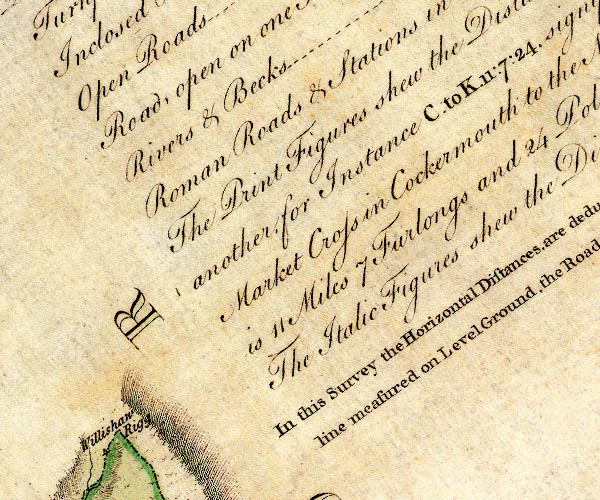 Turnp
Inclosed
Open Roads
Road, open on one
Rivers & Becks
Roman Roads & Stations in
The Print Figures shew the Dista
another, for Instance C. to K. 11:7:24. signi
Market Croſs in Cockermouth to the M
is 11 Miles 7 Furlongs and 24 Pol
The Italic Figures shew the Di
In this Survey the Horizontal Diſtances, are dedu
line meaſured on Level Ground, the Road
R
Willishaw
Rigg